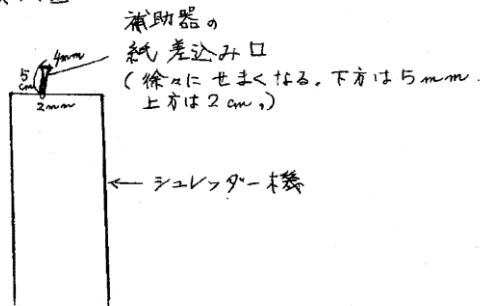 補助器の
紙差込み口
(徐々にせまくなる。下方は5mm.
上方は2cm。)
4mm
5cm
2mm
← シュレッダー機